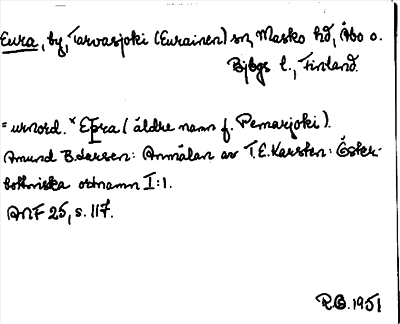 Eura, by, Tarvasjoki (Eurainen) sn, Masko hd, Åbo o.
Bjbgs l., Finland.
= urnord. *Eþra (äldre namn f. Pemarjoki).
Amund B. Larsen: Anmälan av T.E. Karsten: Öster-
bottniska ortnamn I:1.
ANF 25, s. 117.
R.B. 1951